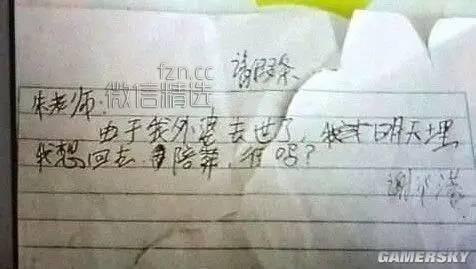 请假条
fzn.cc
微信精选
朱老师:
由于我外婆去世了,我 明天埋
我想回去 陪葬,行吗?
谢
GAMERSKY